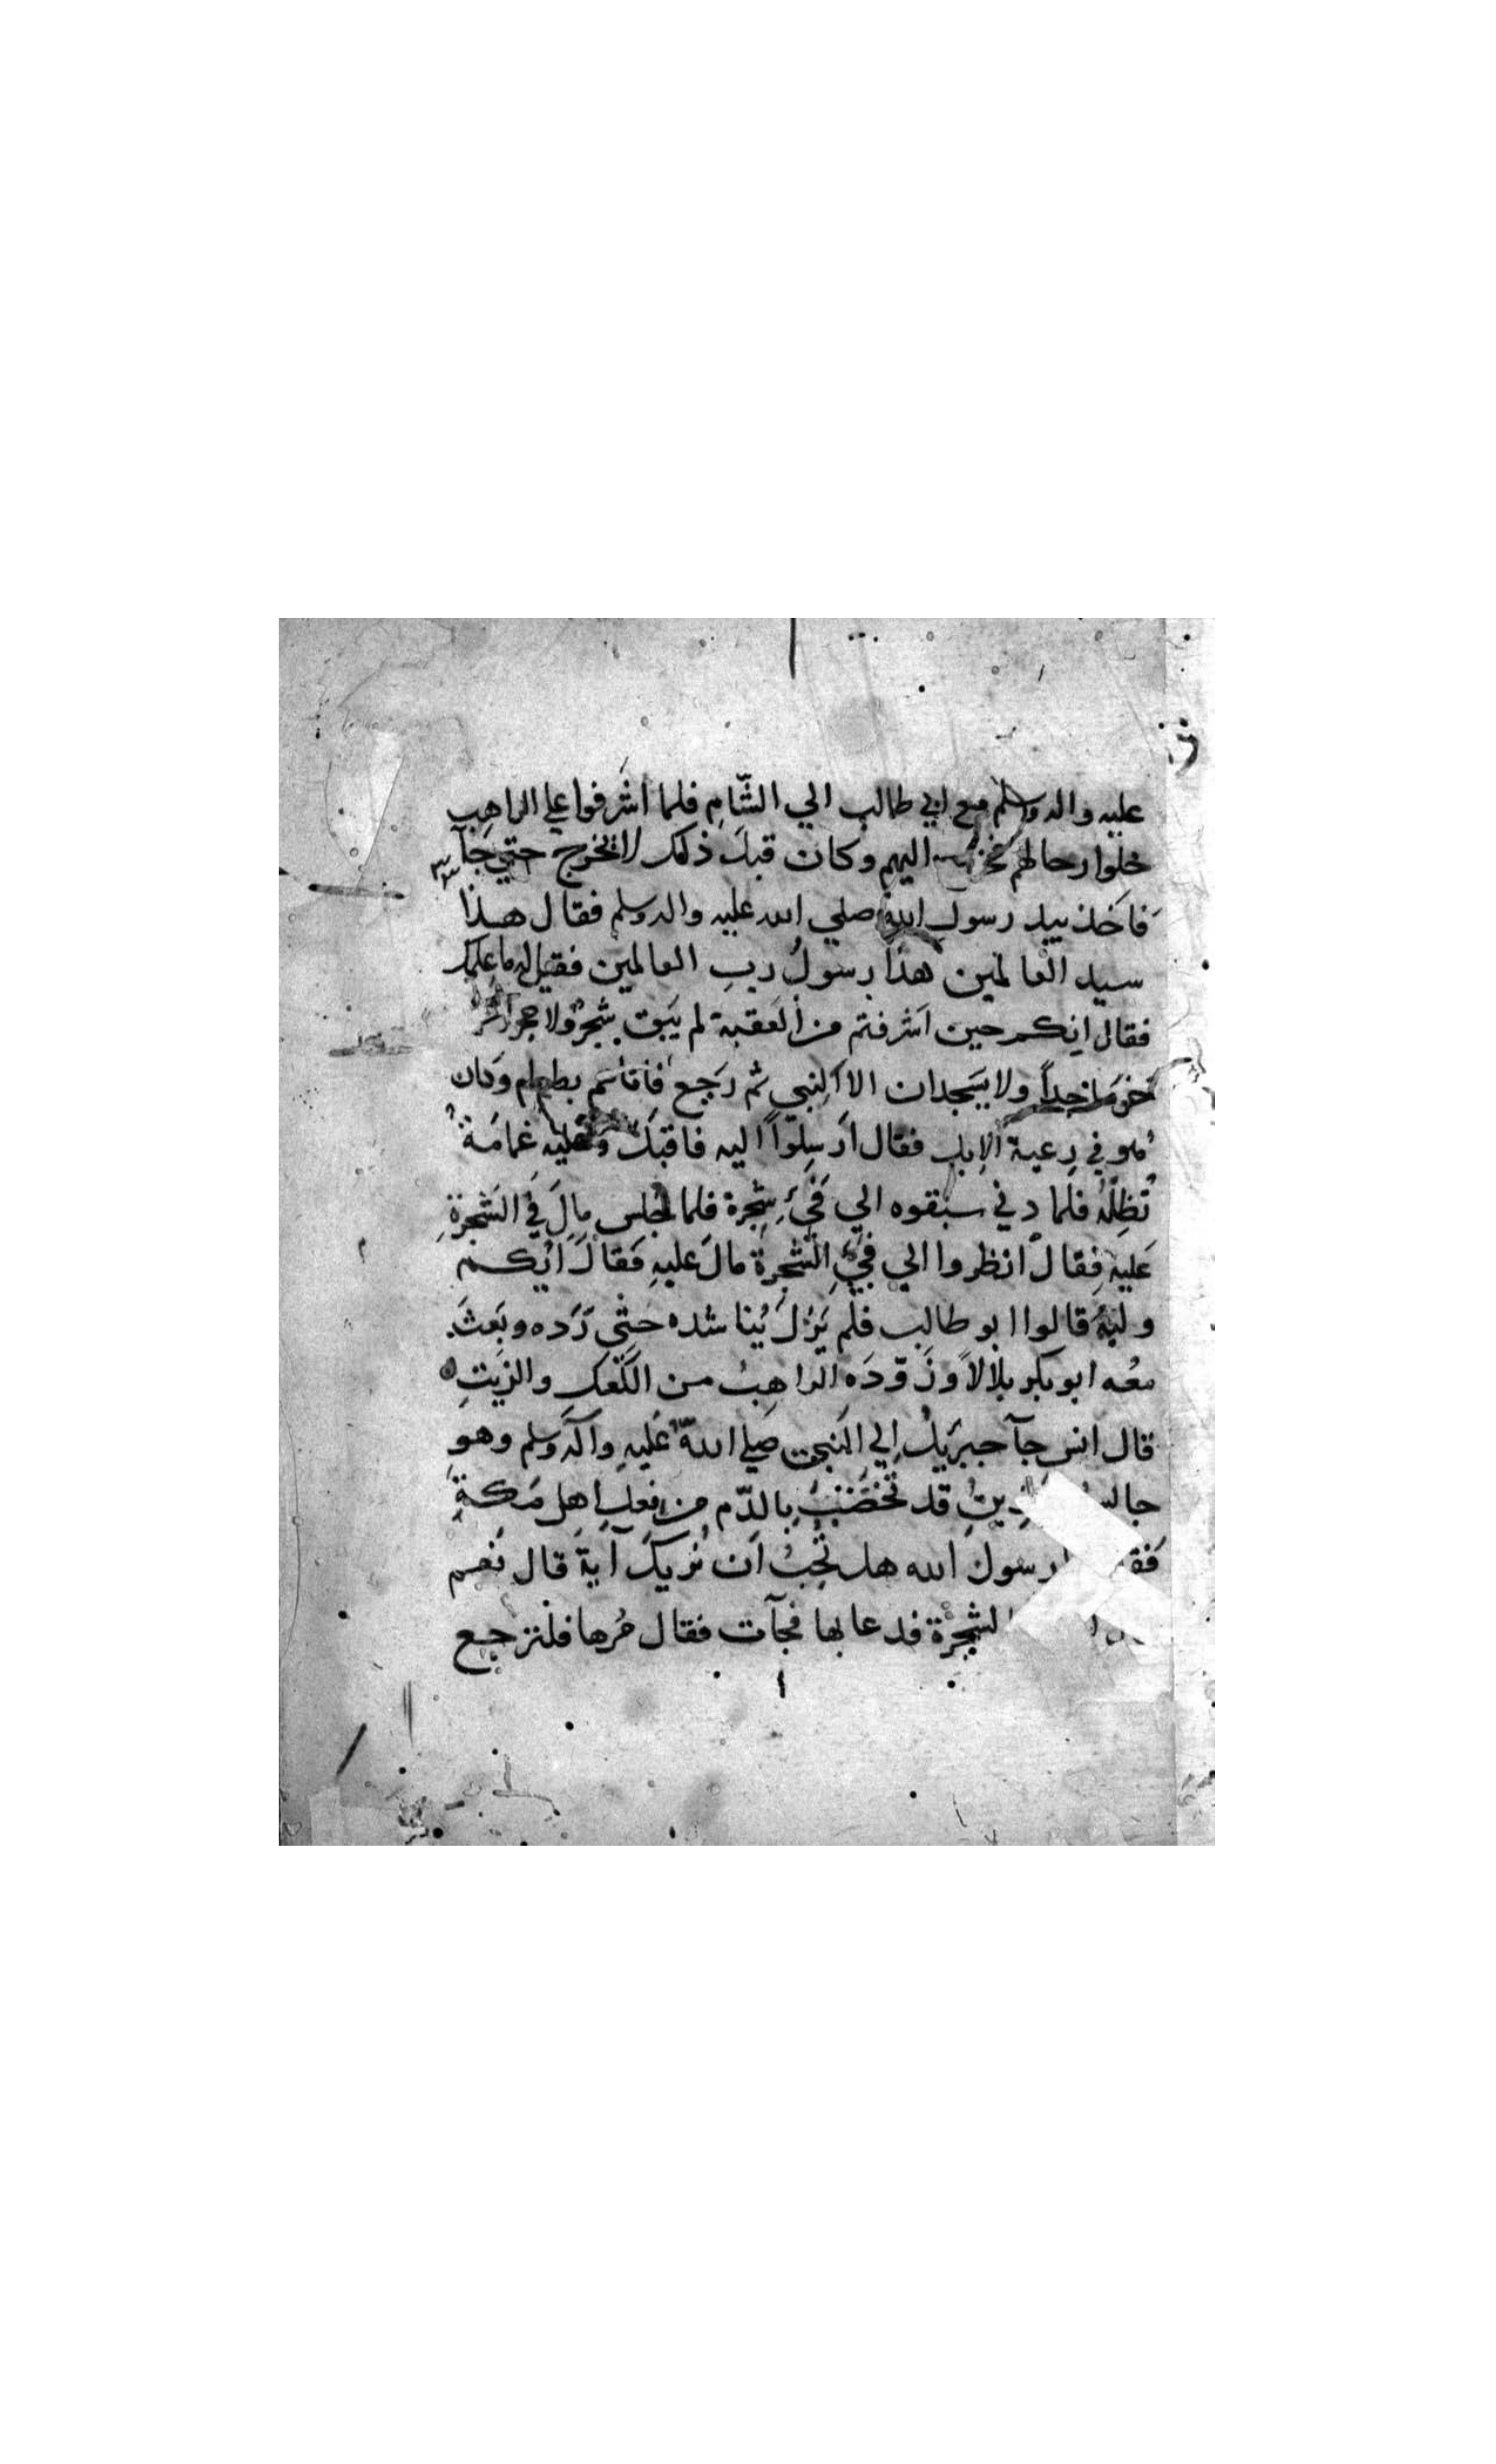 عليه واله وسلم مع ابي طالب الي الشّامِ فلما اشَرفوا علي الراهِب
حلوا رحالهم اليهم وكان قبلَ ذلك لا يخرج حتي جآ
فاَخذ بيد رسولِ اللهِ صلي الله عليه واله وسلم فقال هـذا
سيد العالمين هذا رسولُ ربِ العالمين فقيل له ما علمك
فقال انكم حين اَشرفتم من العَقبة لم يَبق شجرٌ ولا حجر الا
خر ساجداً ولا يَسجدان الا لنبي ثم رَجع فاَتاَهم بطعام وكان
هو في رِعية الإبلِ فقال اَرسِلوا اليه فاقبلَ وعليه غمامَةٌ
تُظِلّهُ فلما دني سبقوه الي فَيْءِ شجرة فلما جلس مالَ فَي الشجرةِ
عَليهِ فقالَ انظروا الي فَيْءِ الشجرةِ مالَ عليهِ فقالَ اَيُكم
وليهُ قالوا ابو طالب فلم يَزلَ يُناشده حتّى رَدّه وبَعثَ
معُه ابو بكر بلالاً وزَوّدَه الراهِبُ من الكَعْكِ والزيتِ ٥
قال انس جآ جبريلُ اِلي النبي صَلي اللهُ عَليهِ وآله وسلم وهو
قد تخضّبَ بِالدّم من فعلِ اهل مَكةِ
رسولَ الله هل تُحِبُ اَن نُريكَ آيةً قال نَعم
الشجرة فدعا بها فجآت فقال مُرها فلترجع